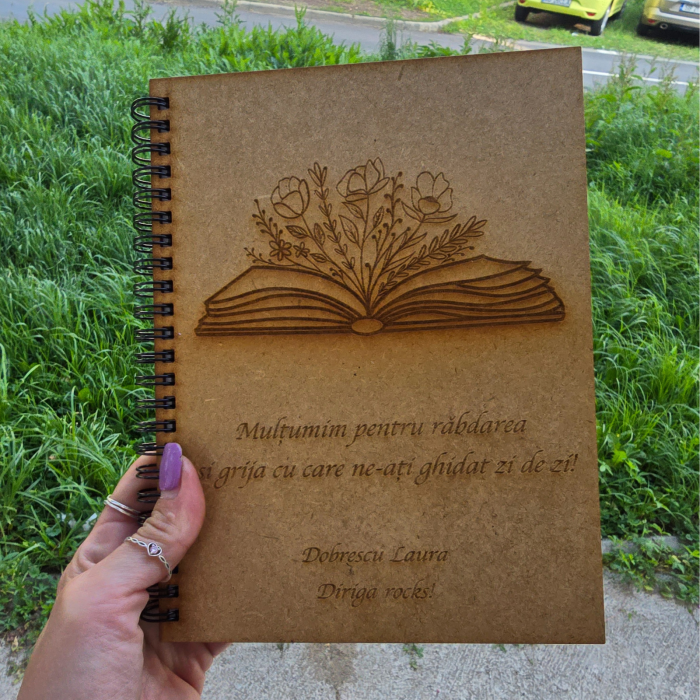 Mulțumim pentru răbdarea
și grija cu care ne-ați ghidat zi de zi!
Dobrescu Laura
Diriga rocks!